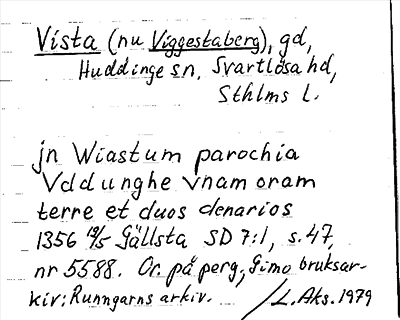 Vista (nu Viggestaberg), gd,
Huddinge sn, Svartlösa hd,
Sthlms l.
jn Wiastum parochia
Vddunghe vnam oram
terre et duos denarios
1356 19/5 Gällsta SD 7:1, s. 47,
nr 5588. Or. på perg., Gimo bruksar-
kiv: Runngarns arkiv. / L. Ahs. 1979